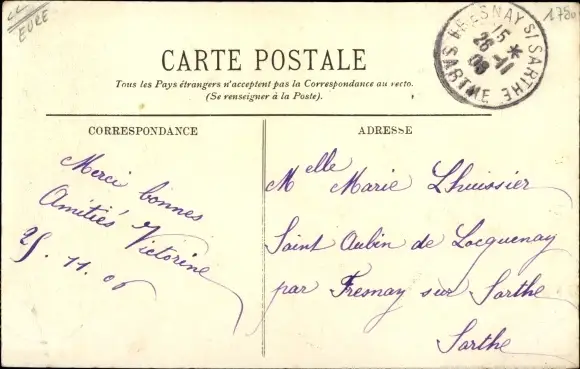 EURE
1750
CARTE POSTALE
Tous les Pays étrangers n'acceptent pas la Correspondance au recto.
(Se renseigner à la Poste).
FRESNAY S/ SARTHE
15
26-11
06
SARTHE
CORRESPONDANCE
Merci bonnes
Amitiés
Victorine
25.11.06
ADRESSE
Melle Marie Lhuissier
Saint Aubin de Locquenay
par Fresnay sur Sarthe
Sarthe